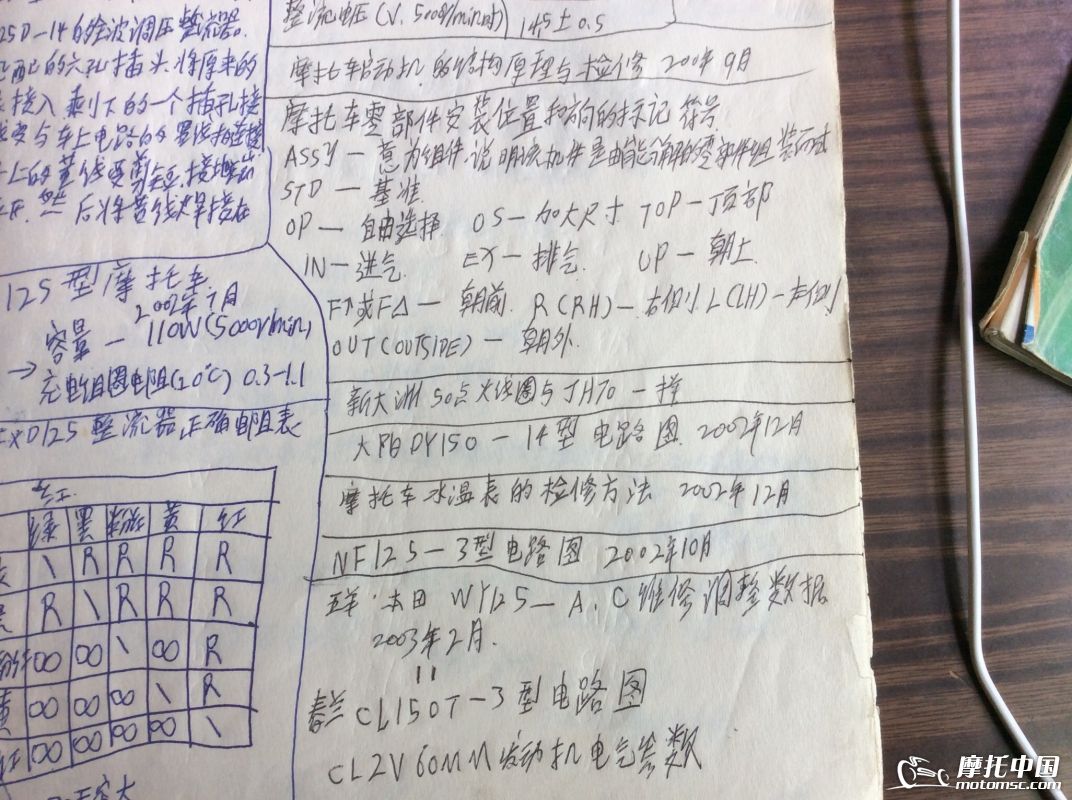 25D-14的全波调压整流器。
匹配的六孔插头,将原来的
接入剩下的一个插孔接
要与车上电路的
上的黄线要剪短,接地
然后将黄线焊接在
125型摩托车
2002年7月
容量 — 110W(5000r/min)
→ 充电线圈电阻(20℃) 0.3-1.1
EXD125整流器正确电阻表
红
绿 黑 粉 黄 红
\ R R R R
黑 R \ R R R
∞ ∞ \ ∞ R
黄 ∞ ∞ ∞ \ R
红 ∞ ∞ ∞ ∞ \
整流电压(V. 5000r/min时) 14.5±0.5
摩托车启动机的结构原理与检修 2001年9月
摩托车零部件安装位置和方向的标记符号
ASSY—意为组件,说明该机件是由能分解的零部件组装而成
STD — 基准
OP — 自由选择 OS—加大尺寸 TOP—顶部
IN—进气 EX—排气 UP—朝上
F↑或F△— 朝前 R(RH)—右侧 L(LH)—左侧
OUT(OUTSIDE)— 朝外
新大洲50点火线圈与JH70一样
大阳DY150-14型电路图 2002年12月
摩托车水温表的检修方法 2002年12月
NF125-3型电路图 2002年10月
五羊·本田 WY125-A、C维修调整数据
2003年2月.
〃
春兰CL150T-3型电路图
CL2V60MM发动机电气参数
摩托中国
motomsc.com